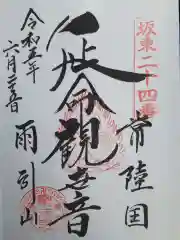 坂東二十四番
常陸国
延命観世音
雨引山
令和五年
六月